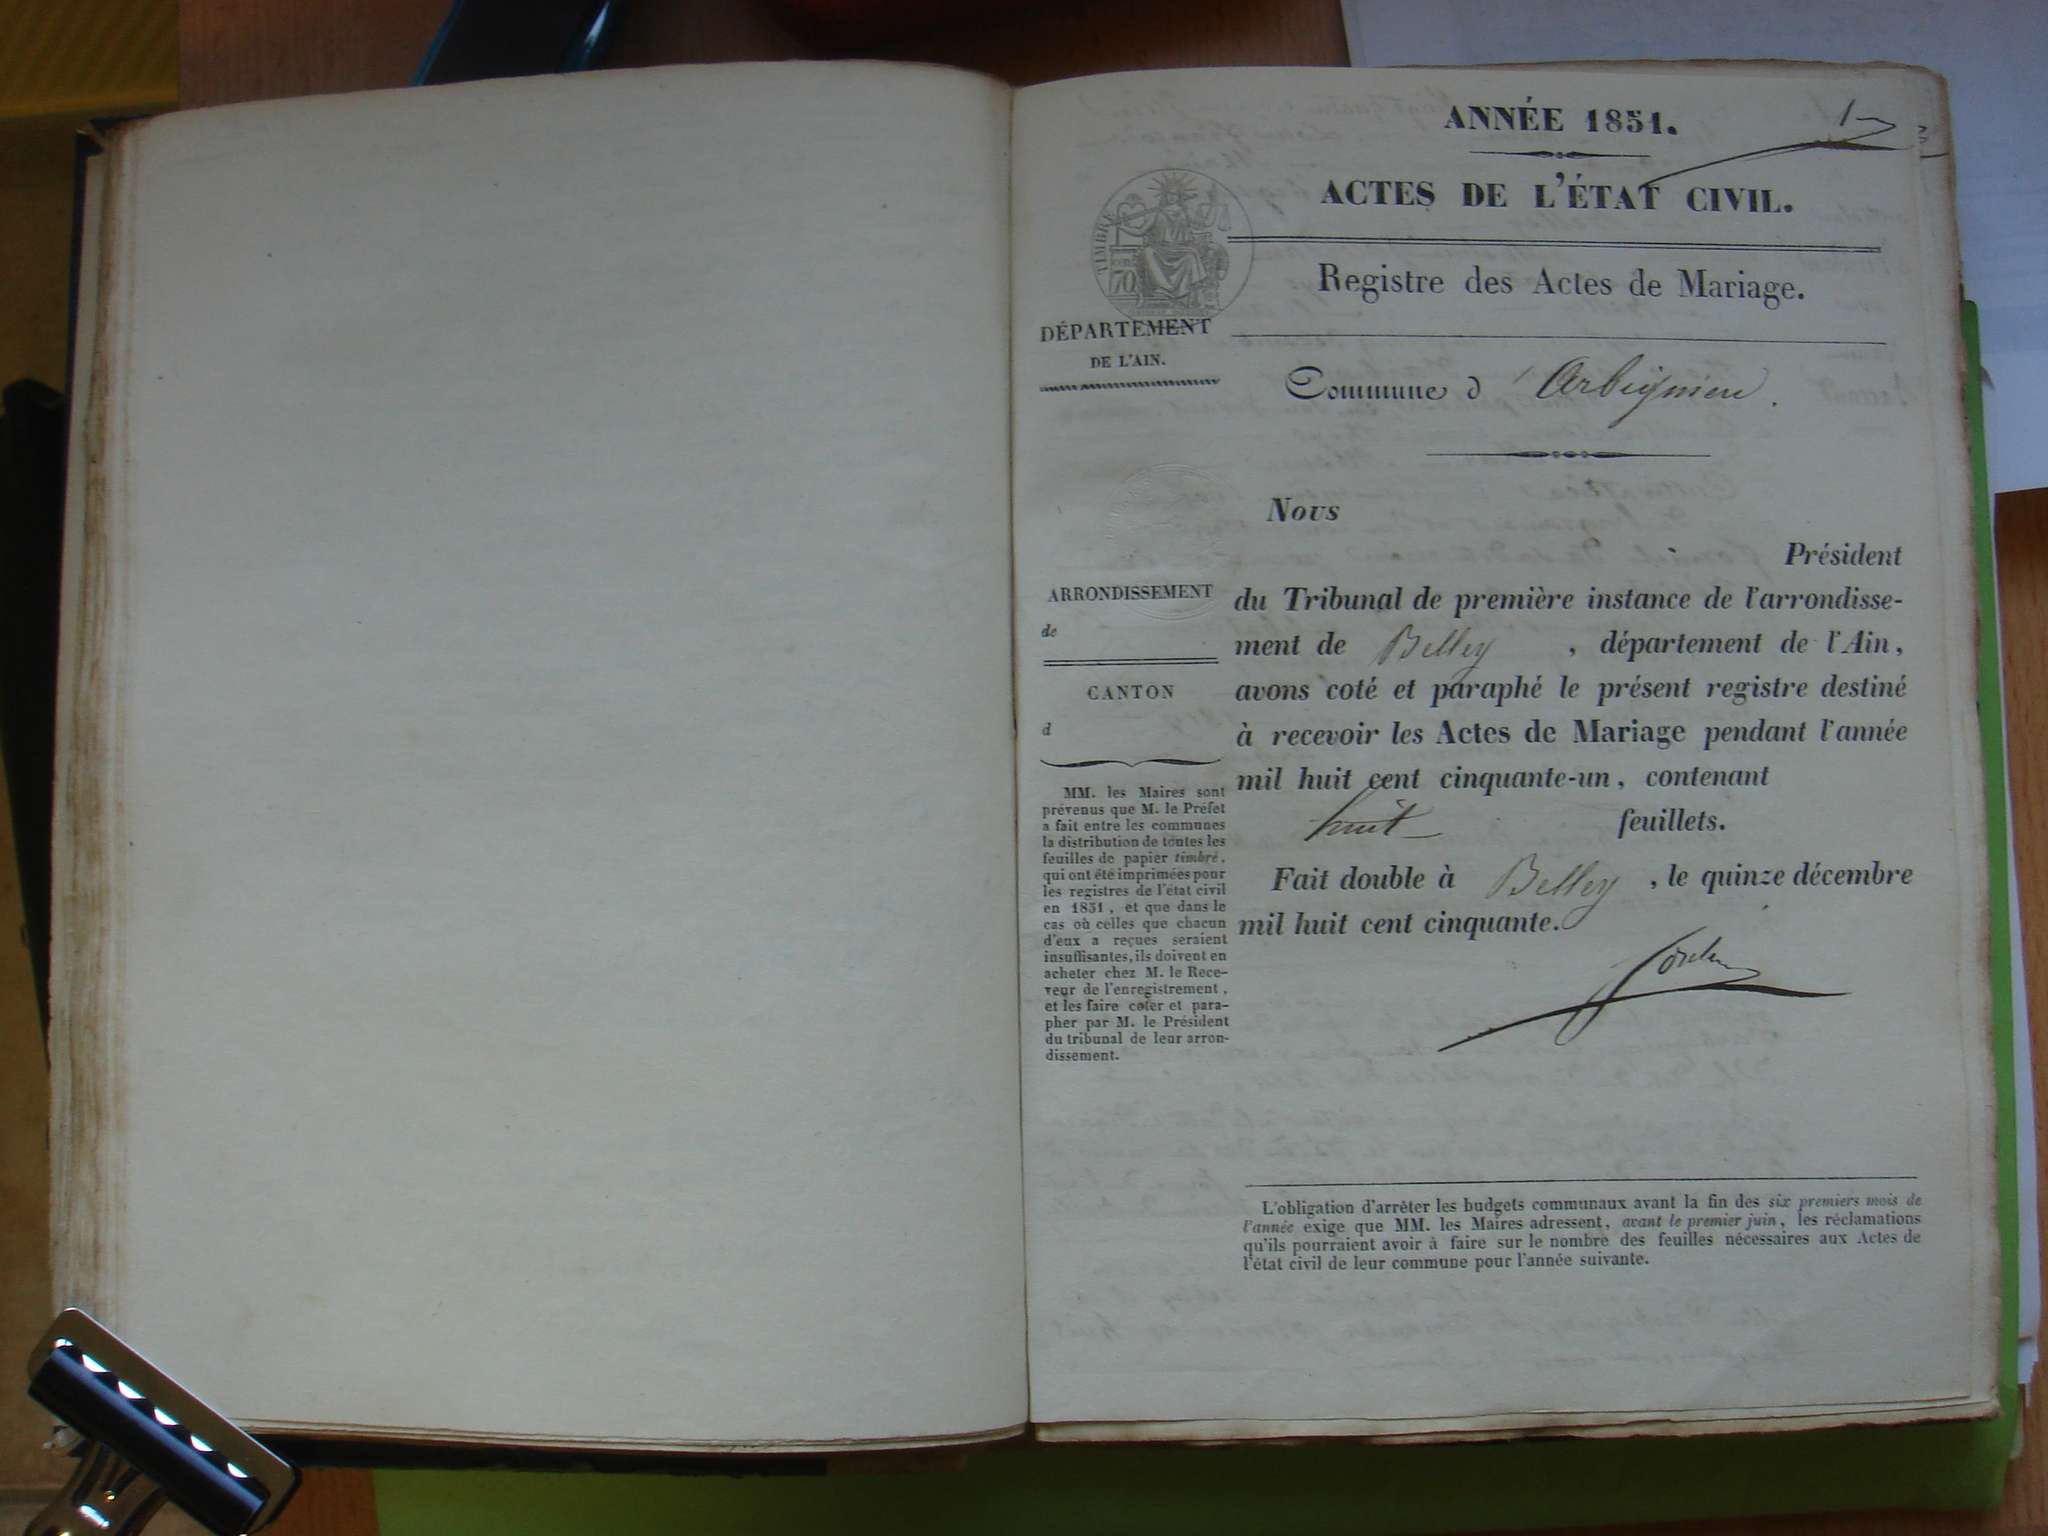 1
ANNÉE 1851.
ACTES DE L'ÉTAT CIVIL.
TIMBRE
70
Registre des Actes de Mariage.
DÉPARTEMENT
DE L'AIN.
Commune d'Arbignieu.
Nous
Président
ARRONDISSEMENT
de
CANTON
d
du Tribunal de première instance de l'arrondisse-
ment de Belley, département de l'Ain,
avons coté et paraphé le présent registre destiné
à recevoir les Actes de Mariage pendant l'année
mil huit cent cinquante-un, contenant
huit feuillets.
Fait double à Belley, le quinze décembre
mil huit cent cinquante.
MM. les Maires sont
prévenus que M. le Préfet
a fait entre les communes
la distribution de toutes les
feuilles de papier timbré,
qui ont été imprimées pour
les registres de l'état civil
en 1851, et que dans le
cas où celles que chacun
d'eux a reçues seraient
insuffisantes, ils doivent en
acheter chez M. le Rece-
veur de l'enregistrement,
et les faire coter et para-
pher par M. le Président
du tribunal de leur arron-
dissement.
L'obligation d'arrêter les budgets communaux avant la fin des six premiers mois de
l'année exige que MM. les Maires adressent, avant le premier juin, les réclamations
qu'ils pourraient avoir à faire sur le nombre des feuilles nécessaires aux Actes de
l'état civil de leur commune pour l'année suivante.